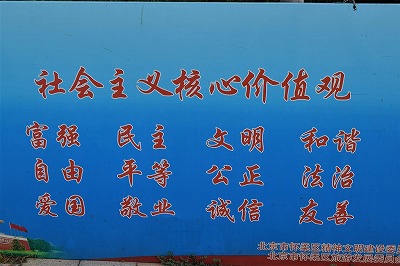 社会主义核心价值观
富强 民主 文明 和谐
自由 平等 公正 法治
爱国 敬业 诚信 友善
北京市怀柔区精神文明建设委员
北京市怀柔区旅游发展委员